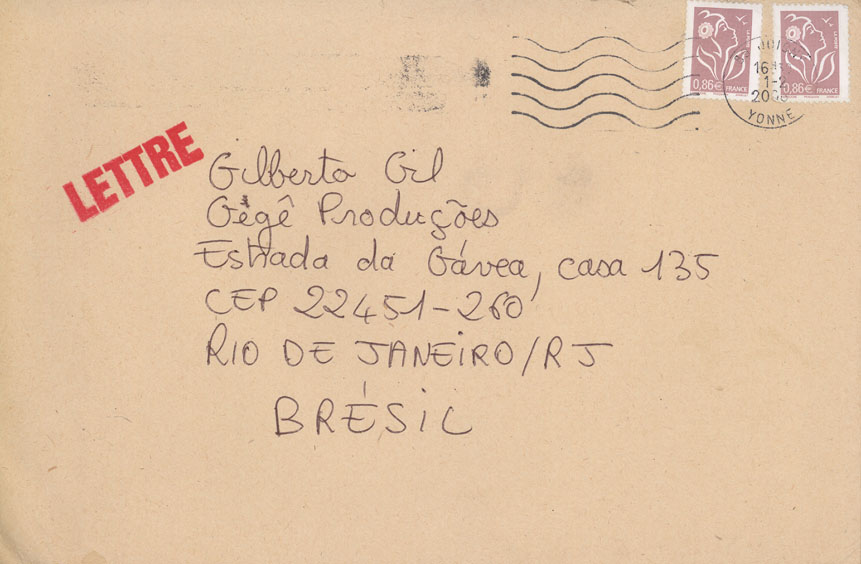 0,86€ FRANCE
0,86€ FRANCE
16
1-2
YONNE
LETTRE
Gilberto Gil
Gêgê Produções
Estrada da Gávea, casa 135
CEP 22451-260
RIO DE JANEIRO/RJ
BRÉSIL